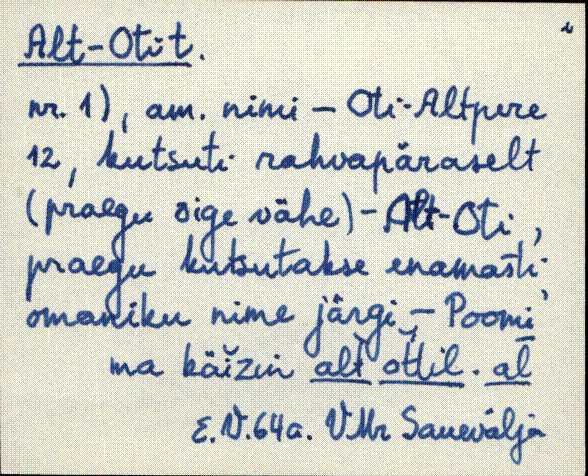 Alt-Otit.
nr. 1), am. nimi – Oti-Altpere
12, kutsuti rahvapäraselt
(praegu õige vähe) – Alt-Oti,
praegu kutsutakse enamasti
omaniku nime järgi, – Poomi
ma käižin alt ottil. al
E.V. 64 a. VMr Sauevälja